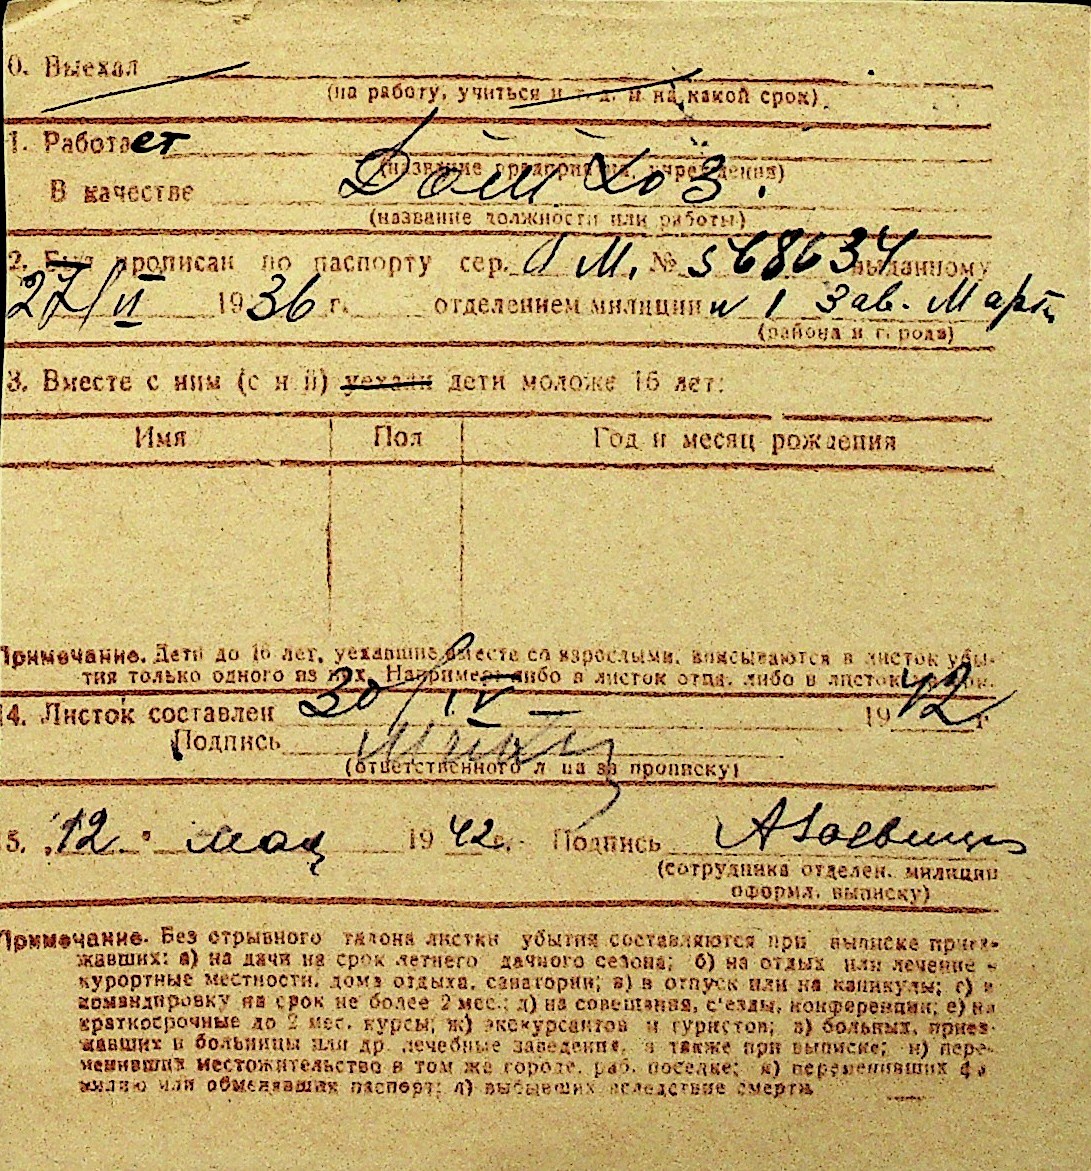 0. Выехал
(на работу, учиться и т. д. и на какой срок)
1. Работает
(название предприятия, учреждения)
Дом Хоз.
В качестве
(название должности или работы)
2. Был прописан по паспорту сер. М. № 568634 выданному
27/II 1936 г. отделением милиции 1 Зав.
(района и города)
3. Вместе с ним (с ней) уехали дети моложе 16 лет:
Имя Пол Год и месяц рождения
Примечание. Дети до 16 лет, уехавшие вместе со взрослыми, вписываются в листок убы-
тия только одного из них. Например: либо в листок отца, либо в листок матери.
14. Листок составлен 30/IV 1942 г.
Подпись
(ответственного лица за прописку)
15. „12" мая 1942 г. Подпись
(сотрудника отделен. милиции
оформл. выписку)
Примечание. Без отрывного талона листки убытия составляются при выписке приез-
жавших: а) на дачи на срок летнего дачного сезона; б) на отдых или лечение в
курортные местности, дома отдыха, санатории; в) в отпуск или на каникулы; г) в
командировку на срок не более 2 мес.; д) на совещания, с'езды, конференции; е) на
краткосрочные до 2 мес. курсы; ж) экскурсантов и туристов; з) больных, приез-
жавших в больницы или др. лечебные заведения, а также при выписке; и) пере-
менивших местожительство в том же городе, раб. поселке; к) переменивших фа-
милию или обменявших паспорт; л) выбывших вследствие смерти.